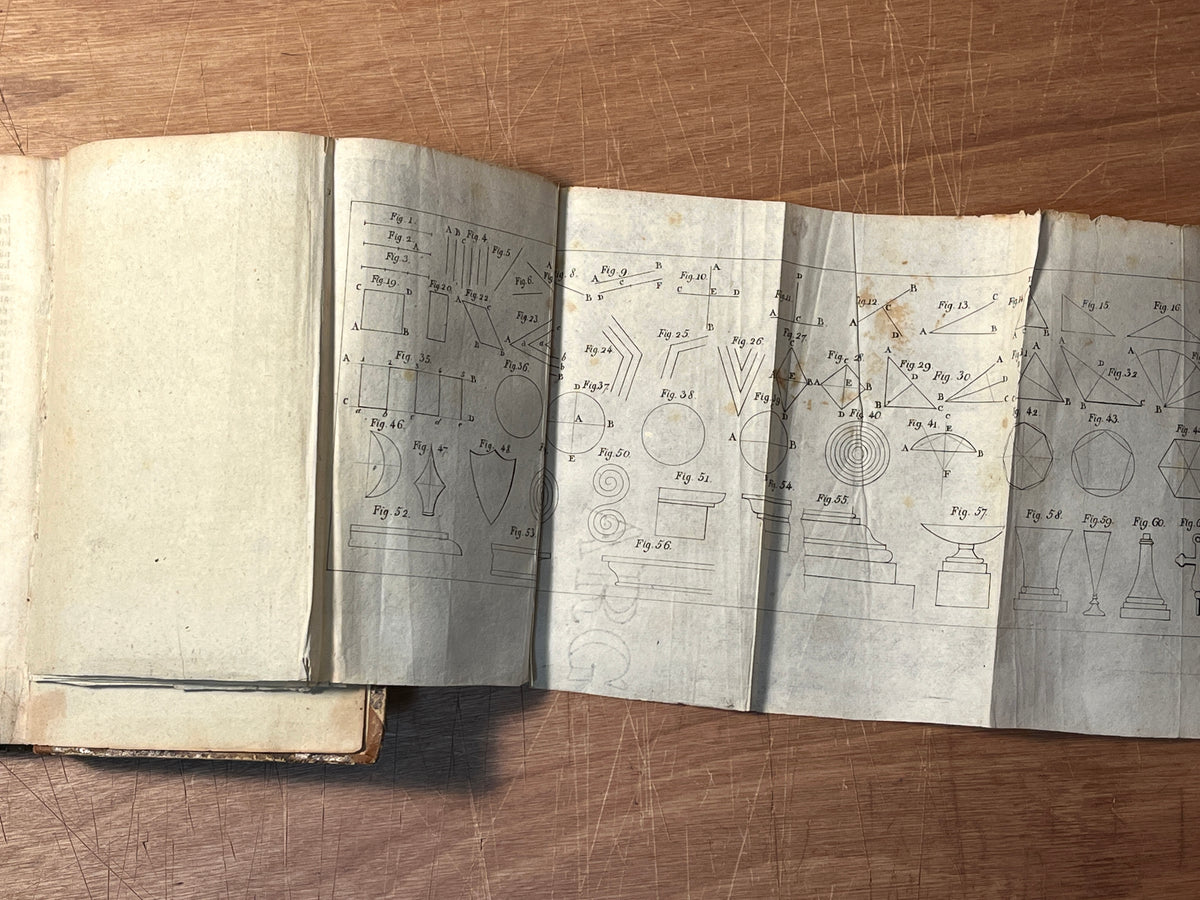 Fig. 1.
Fig. 2.
A
Fig. 3.
A B Fig. 4
C
Fig. 5
Fig. 6.
A
Fig. 8.
B
A Fig. 9 B
D C F
Fig. 10. A
C E D
B
D
A C B
Fig. 12. B
A C D
Fig. 13. C
A B
Fig. 15
Fig. 16.
C Fig. 19. D
A B
Fig. 20.
A Fig. 22. C
E b
Fig. 23
A a c
Fig. 24
Fig. 25.
Fig. 26.
Fig. 27
C
A E B
D
Fig. 28.
A C E B
D
A Fig. 29
D
B C
Fig. 30. A
B D C
A
A D Fig. 32.
B C
A
B
A 1 2 Fig. 35. 4 5 B
C a b c d e D
Fig. 36.
Fig. 37
D
A B
E
Fig. 38.
Fig. 39
A B
Fig. 40.
Fig. 41 C
E
A B
F
Fig. 42
Fig. 43.
Fig. 46.
Fig. 47
Fig. 48.
Fig. 50.
Fig. 51.
Fig. 52.
Fig. 53.
Fig. 54.
Fig. 55.
Fig. 56.
Fig. 57.
Fig. 58.
Fig. 59.
Fig. 60.